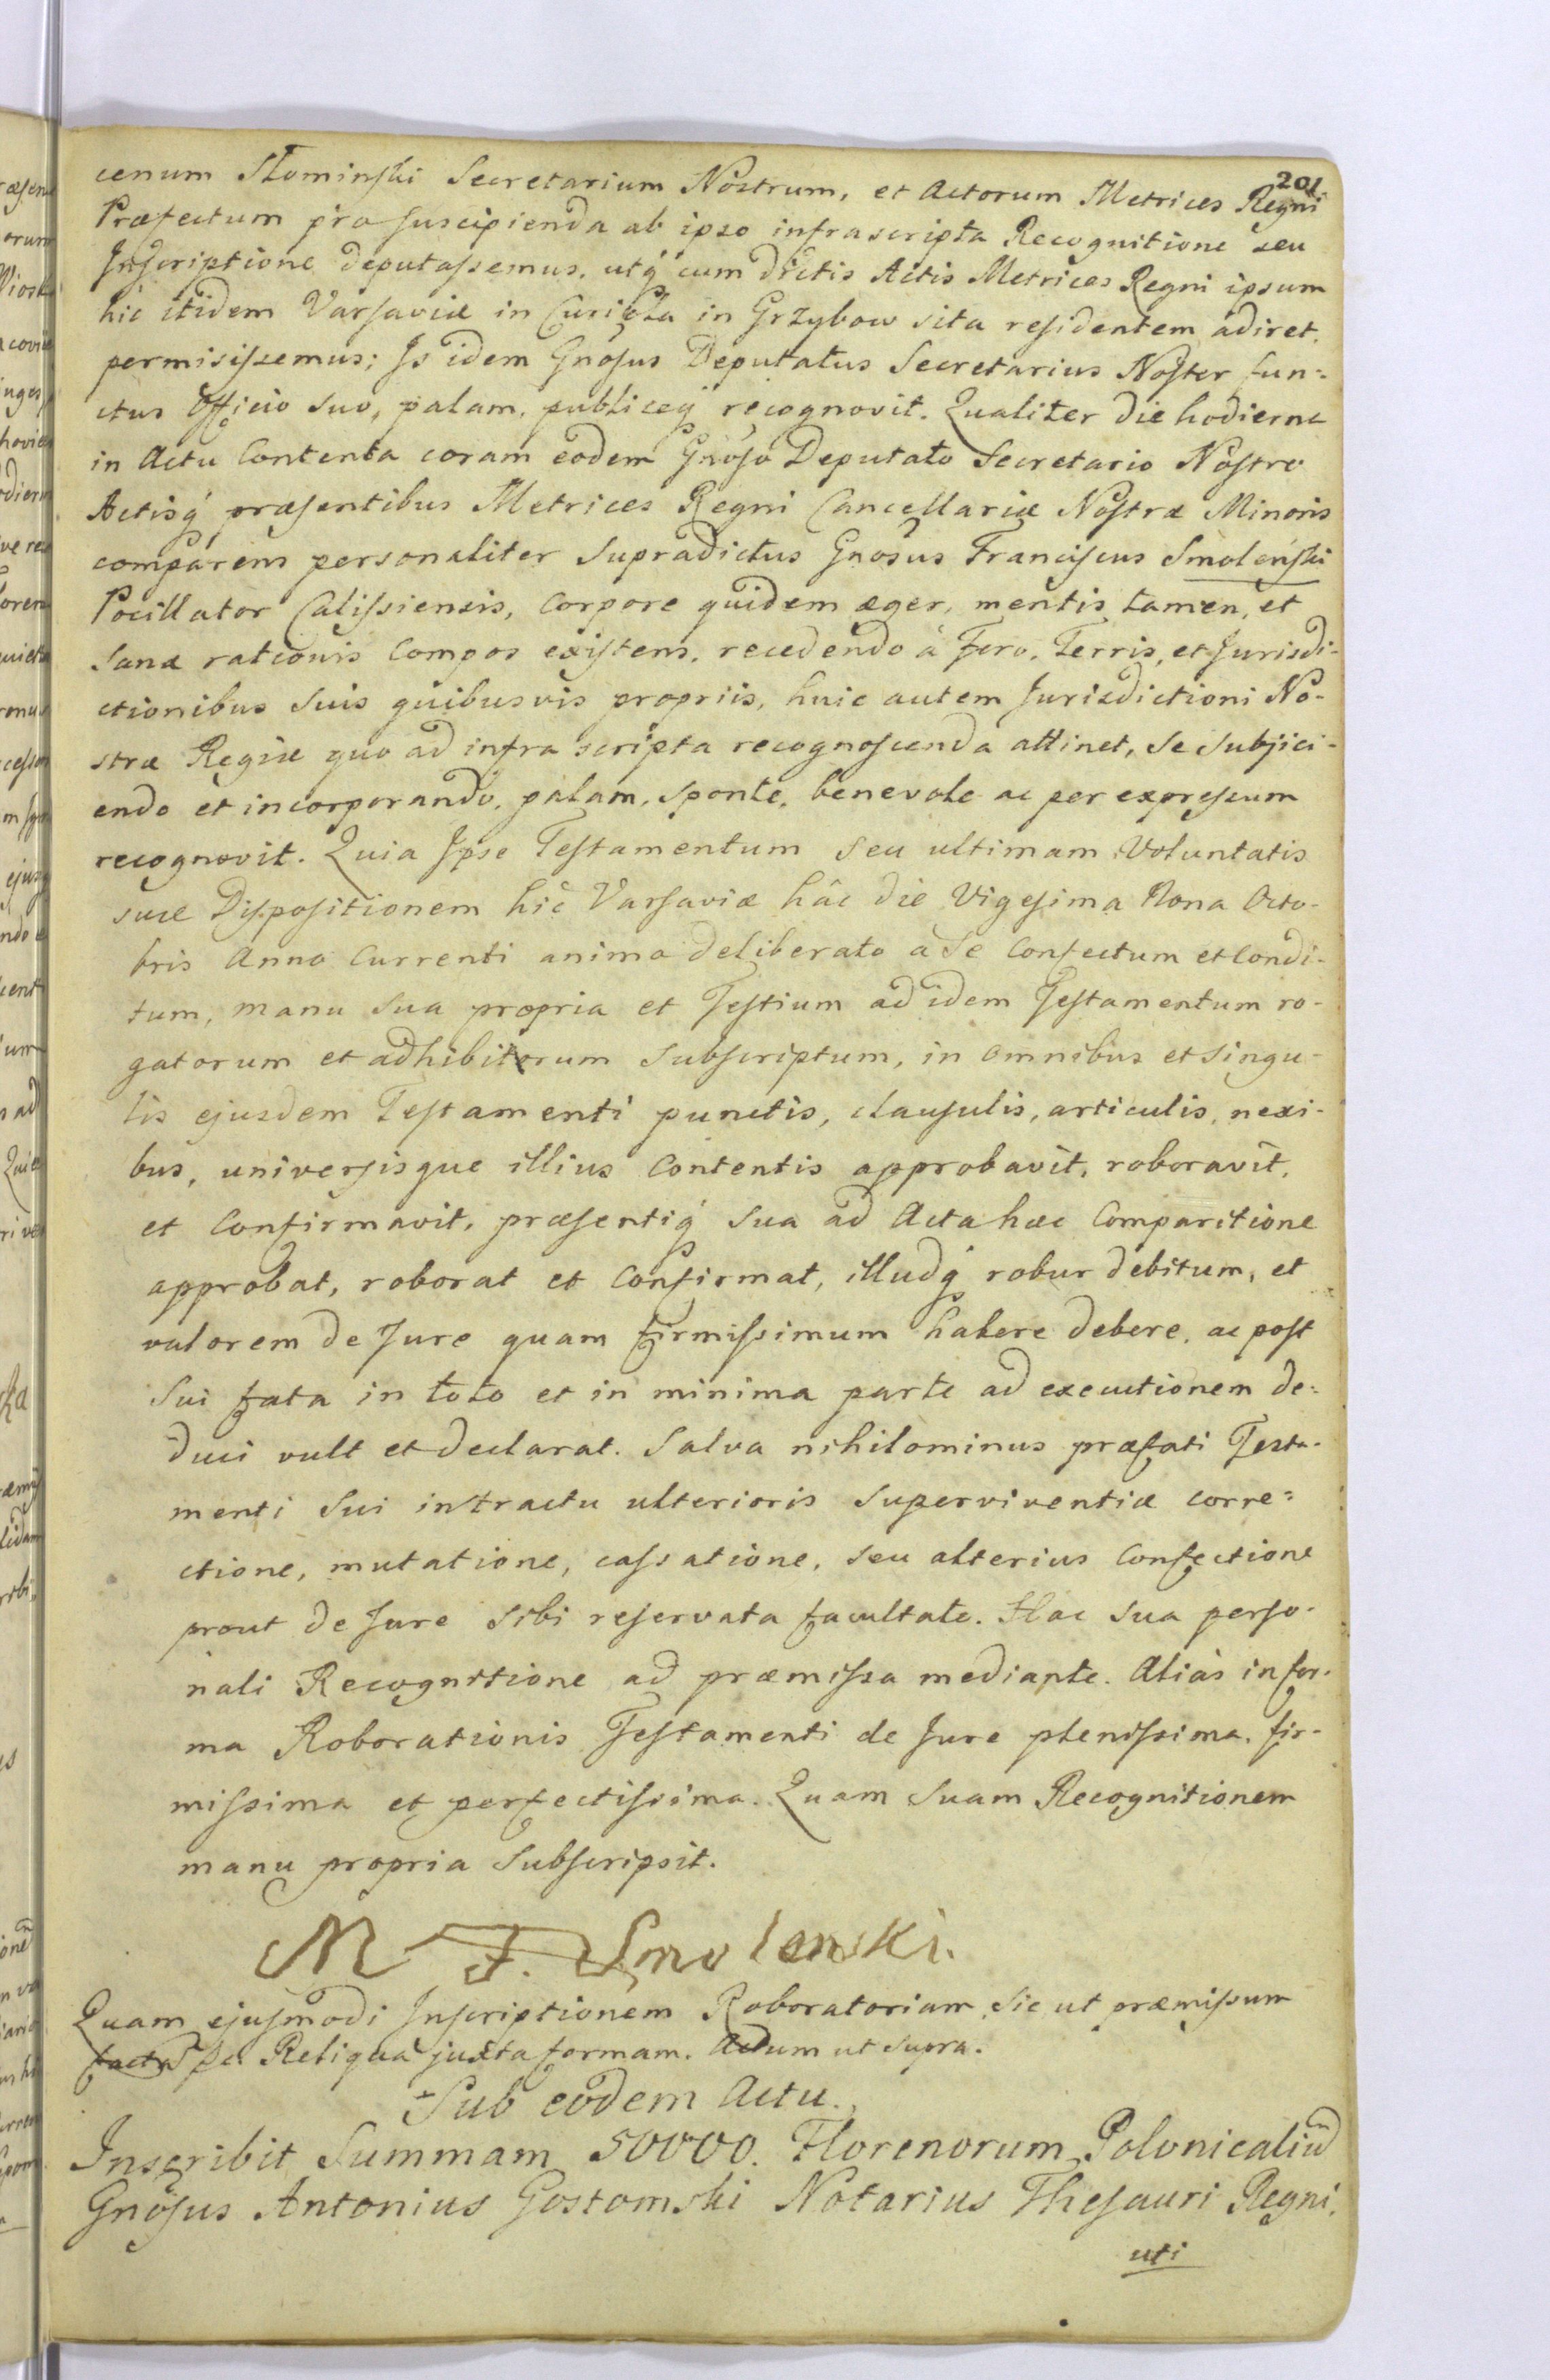 201
cenum Słominski Secretarium Nostrum, et Actorum Metrices Regni
Præfectum pro suscipienda ab ipso infrascripta Recognitione seu
Inscriptione deputassemus, utq́ cum dictis Actis Metrices Regni ipsum
hic itidem Varsaviæ in Curiola in Grzybow sita residentem adiret,
permisissemus; Is idem Gnosus Deputatus Secretarius Noster fun=
ctus Officio suo, palam, publiceq́ recognovit. Qualiter die hodierna
in Actu Contenta coram eodem Gnoso Deputato Secretario Nostro
Actisq́ præsentibus Metrices Regni Cancellariæ Nostræ Minoris
comparens personaliter supradictus Gnosus Franciscus Smoleński
Pocillator Calissiensis, Corpore quidem æger, mentis tamen, et
sanæ rationis Compos existens, recedendo à Foro, Terris, et Jurisdi-
ctionibus suis quibusvis propriis, huic autem Jurisdictioni No-
stræ Regiæ quo ad infra scripta recognoscenda attinet, se subjici-
endo et incorporando, palam, sponte, benevole ac per expressum
recognovit. Quia Ipse Testamentum seu ultimam Voluntatis
suæ Dispositionem hîc Varsaviæ hâc die Vigesima Nona Octo-
bris Anno Currenti animo deliberato a se Confectum et Condi-
tum, manu sua propria et Testium ad idem Testamentum ro-
gatorum et adhibitorum subscriptum, in omnibus et singu-
lis ejusdem Testamenti punctis, clausulis, articulis, nexi-
bus, universisque illius Contentis approbavit, roboravit,
et Confirmavit, præsentiq́ sua ad Acta hæc Comparitione
approbat, roborat et Confirmat, illudq́ robur debitum, et
valorem de Jure quam firmissimum habere debere, ac post
sui fata in toto et in minima parte ad executionem de=
duci vult et declarat. Salva nihilominus præfati Testa-
menti sui intractu ulterioris superviventiæ corre=
ctione, mutatione, cassatione, seu alterius Confectione
prout de Jure sibi reservata facultate. Hac sua perso-
nali Recognitione ad præmissa mediante. Aliàs in for-
ma Roborationis Testamenti de Jure plenissima, fir-
missima et perfectissima. Quam suam Recognitionem
manu propria subscripsit.
M F. Smolenski.
Quam ejusmodi Inscriptionem Roboratoriam, sic ut præmissum
Reliqua juxta formam. Actum ut supra.
Sub eodem Actu.
Inscribit Summam 50000. Florenorum Polonicaliū
Gnosus Antonius Gostomski Notarius Thesauri Regni.
uti